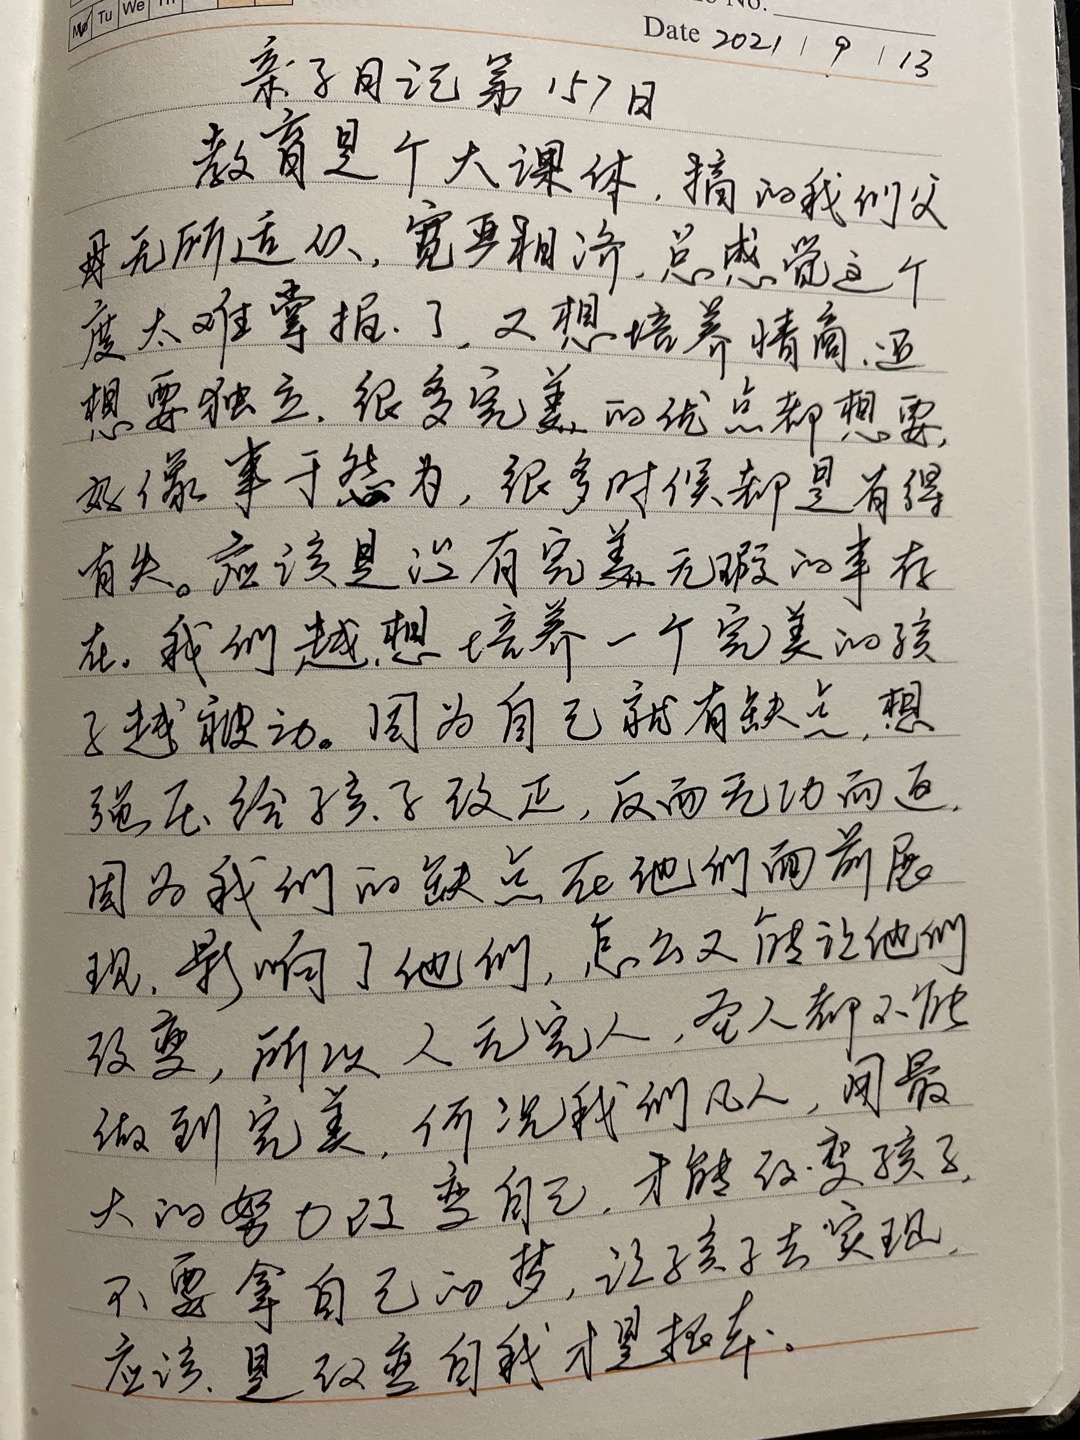 Mo Tu We Th
No.
Date 2021 / 9 / 13
亲子日记第157日
教育是个大课体，搞的我们父
母无所适从，宽严相济，总感觉这个
度太难掌握了，又想培养情商，还
想要独立，很多完美的优点都想要，
好像事于愿为，很多时候却是有得
有失。应该是没有完美无瑕的事存
在。我们越想培养一个完美的孩
子越被动。因为自己就有缺点，想
强压给孩子改正，反而无功而返，
因为我们的缺点在他们面前展
现，影响了他们，怎么又能让他们
改变，所以人无完人，圣人都不能
做到完美，何况我们凡人，用最
大的努力改变自己，才能改变孩子，
不要拿自己的梦，让孩子去实现，
应该是改变自我才是根本。